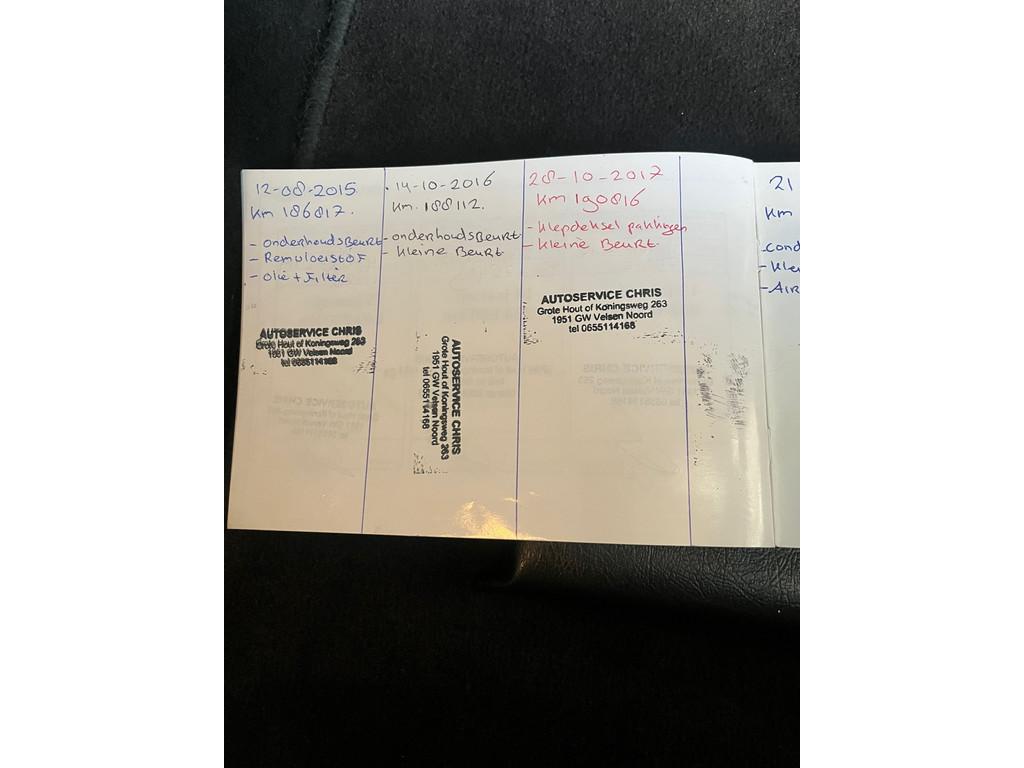 12-08-2015
Km 186817.
- onderhoudsBeurt
- Remvloeistof
- olie + Filter
AUTOSERVICE CHRIS
Grote Hout of Koningsweg 263
1951 GW Velsen Noord
tel 0655114168
14-10-2016
Km. 188112.
- onderhoudsBeurt
- Kleine Beurt
AUTOSERVICE CHRIS
Grote Hout of Koningsweg 263
1951 GW Velsen Noord
tel 0655114168
28-10-2017
Km 190816
- Klepdeksel pakkingen
- Kleine Beurt
AUTOSERVICE CHRIS
Grote Hout of Koningsweg 263
1951 GW Velsen Noord
tel 0655114168
21
Km
- cond
- Kle
- AIR